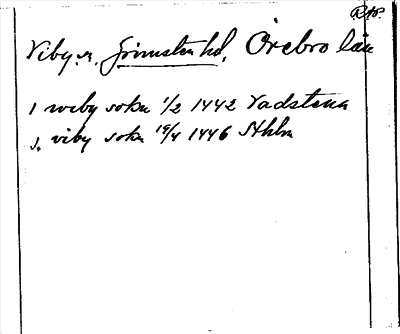 RAp.
Viby sn, Grimsten hd, Örebro län
i wiby sokn 1/2 1442 Vadstena
j. viby sokn 19/4 1446 Sthlm